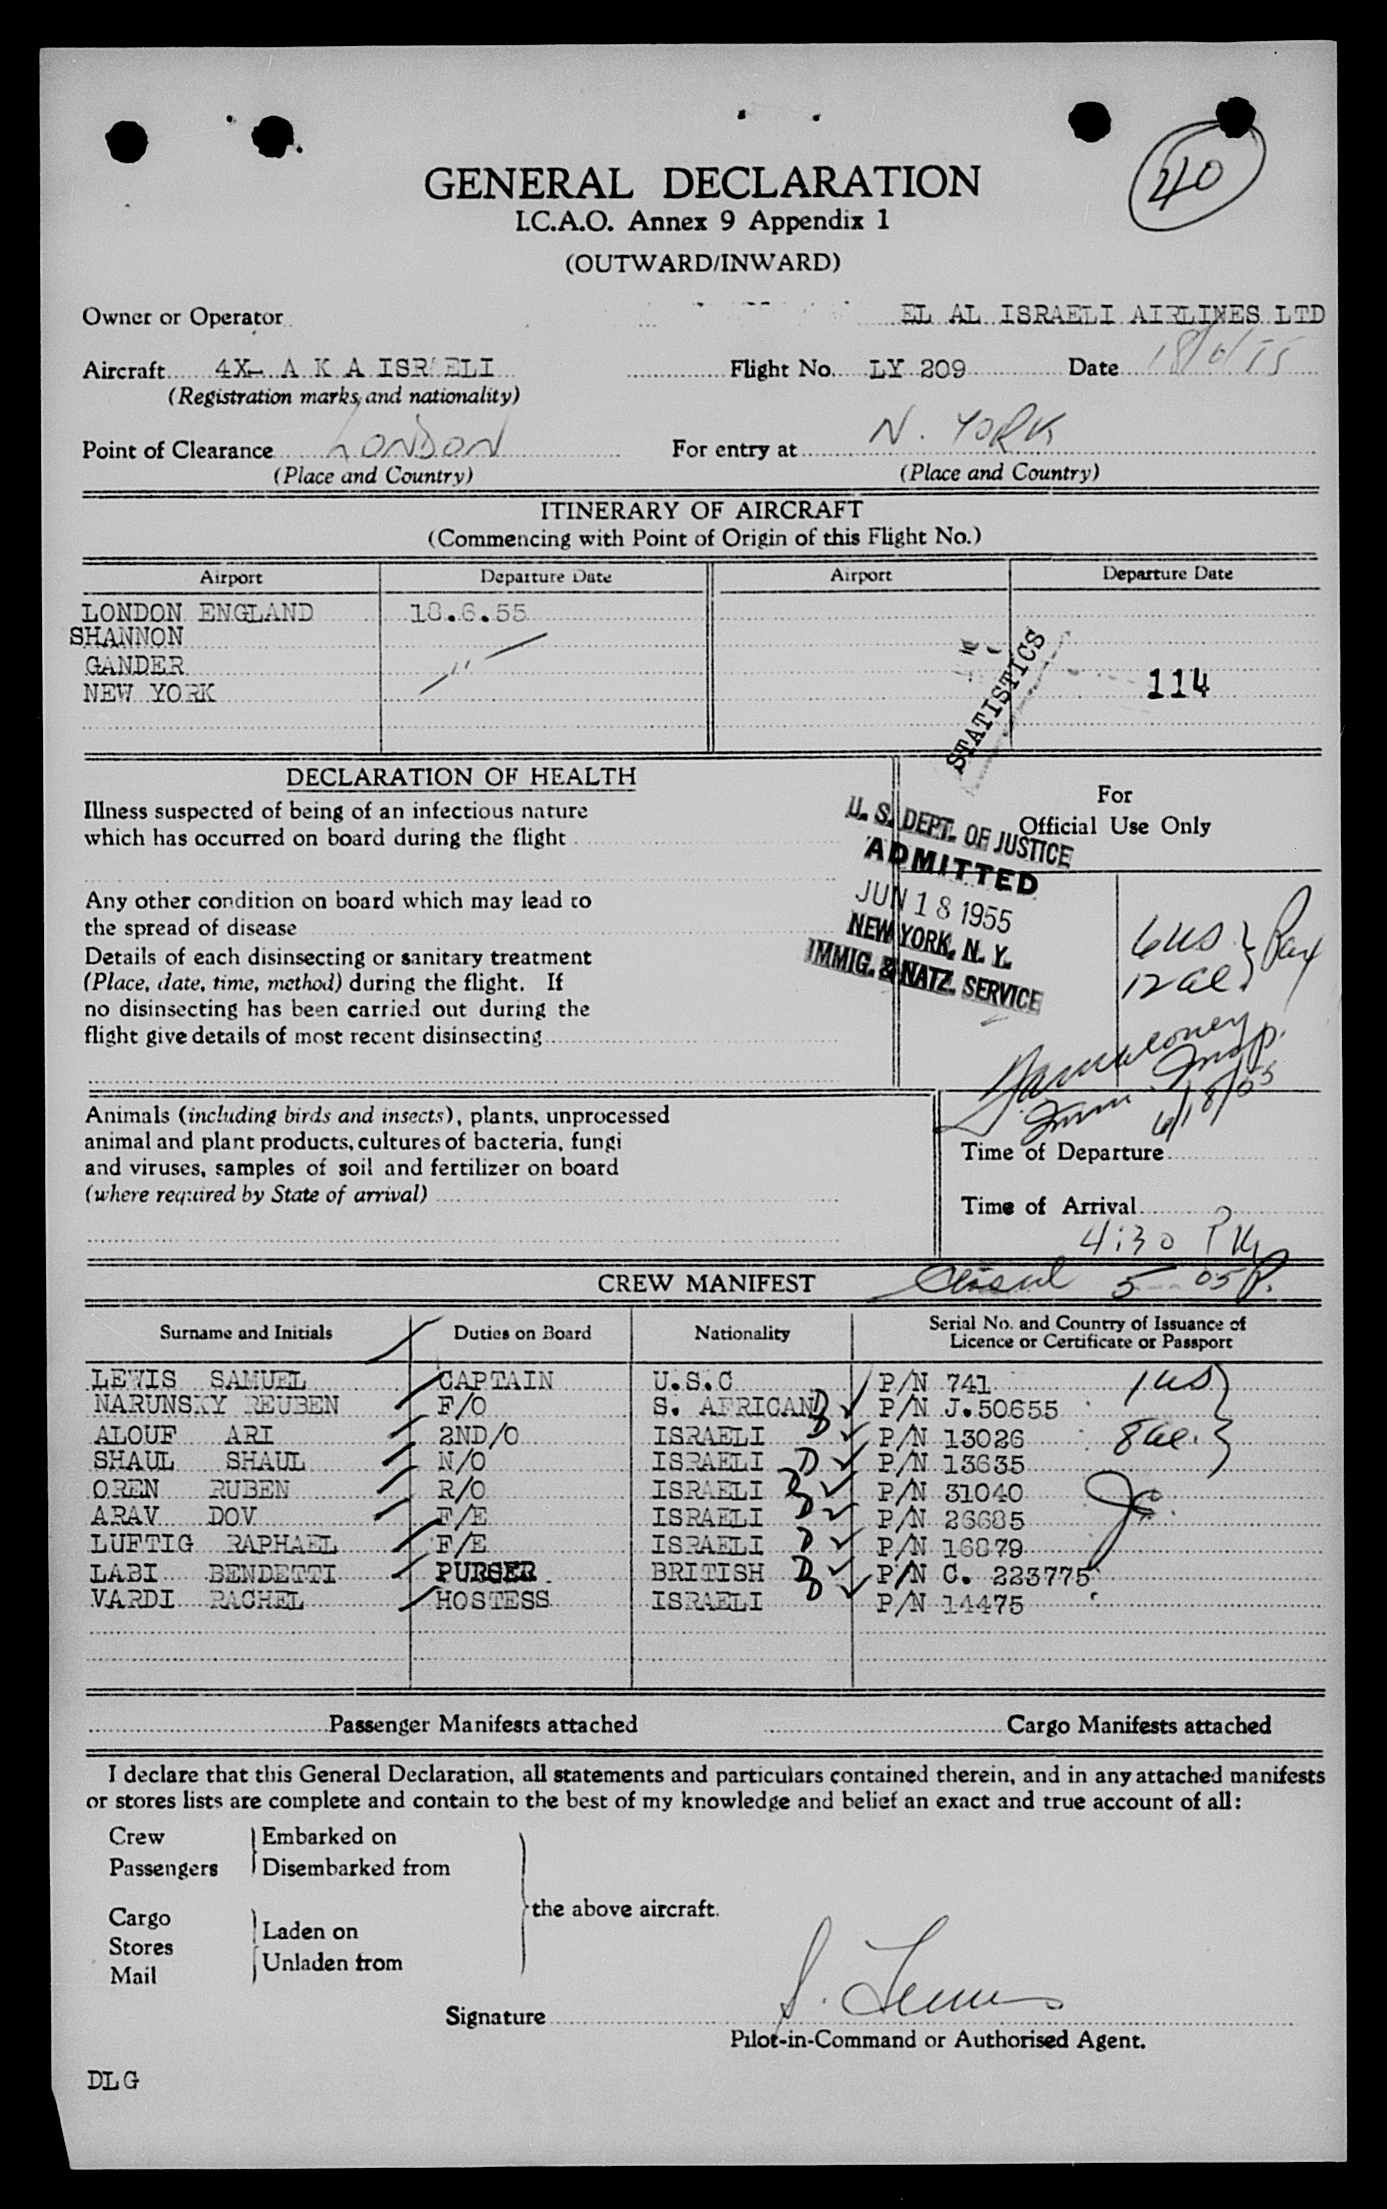 40
GENERAL DECLARATION
I.C.A.O. Annex 9 Appendix 1
(OUTWARD/INWARD)
Owner or Operator EL AL ISRAELI AIRLINES LTD
Aircraft 4X- A K A ISRAELI Flight No. LY 209 Date 18/6/55
(Registration marks and nationality)
Point of Clearance LONDON For entry at N. YORK
(Place and Country) (Place and Country)
ITINERARY OF AIRCRAFT
(Commencing with Point of Origin of this Flight No.)
Airport Departure Date Airport Departure Date
LONDON ENGLAND 18.6.55
SHANNON
GANDER
NEW YORK
STATISTICS
114
DECLARATION OF HEALTH
Illness suspected of being of an infectious nature
which has occurred on board during the flight
Any other condition on board which may lead to
the spread of disease
Details of each disinsecting or sanitary treatment
(Place, date, time, method) during the flight. If
no disinsecting has been carried out during the
flight give details of most recent disinsecting
For
Official Use Only
U. S. DEPT. OF JUSTICE
ADMITTED
JUN 18 1955
NEW YORK, N. Y.
IMMIG. & NATZ. SERVICE
6 US } Pax
12 al.
Insp.
Imm 6/18/55
Animals (including birds and insects), plants, unprocessed
animal and plant products, cultures of bacteria, fungi
and viruses, samples of soil and fertilizer on board
(where required by State of arrival)
Time of Departure
Time of Arrival
4:30 PM
5 05 P.
CREW MANIFEST
Surname and Initials Duties on Board Nationality Serial No. and Country of Issuance of
Licence or Certificate or Passport
LEWIS SAMUEL CAPTAIN U.S.C P/N 741 1 US
NARUNSKY REUBEN F/O S. AFRICAN D P/N J.50655
ALOUF ARI 2ND/O ISRAELI D P/N 13026 8 al.
SHAUL SHAUL N/O ISRAELI D P/N 13635
OREN RUBEN R/O ISRAELI D P/N 31040
ARAV DOV F/E ISRAELI D P/N 26685
LUFTIG RAPHAEL F/E ISRAELI D P/N 16879
LABI BENDETTI PURSER BRITISH D P/N C. 223775
VARDI RACHEL HOSTESS ISRAELI D P/N 14475
Passenger Manifests attached Cargo Manifests attached
I declare that this General Declaration, all statements and particulars contained therein, and in any attached manifests
or stores lists are complete and contain to the best of my knowledge and belief an exact and true account of all:
Crew Embarked on
Passengers Disembarked from
the above aircraft.
Cargo
Stores Laden on
Mail Unladen from
Signature S. Lewis
Pilot-in-Command or Authorised Agent.
DLG